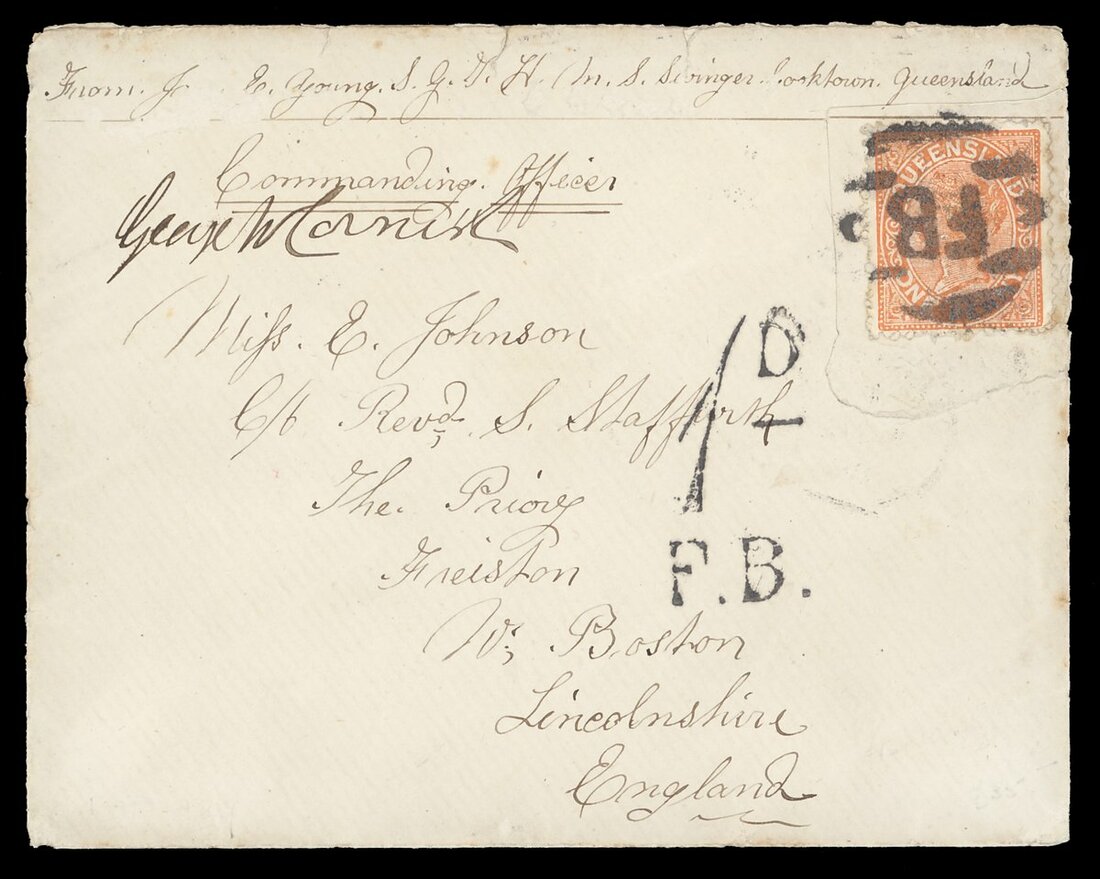 From. J. E. Young. S. G. D. H. M. S. Swinger. Cooktown. Queensland
Commanding. Officer
George W Cornish
QUEENSL D
FB
Miss. E. Johnson
D
1
C/o Revd. S. Staffurth
The. Priory
Freiston
F.B.
Nr; Boston
Lincolnshire
England